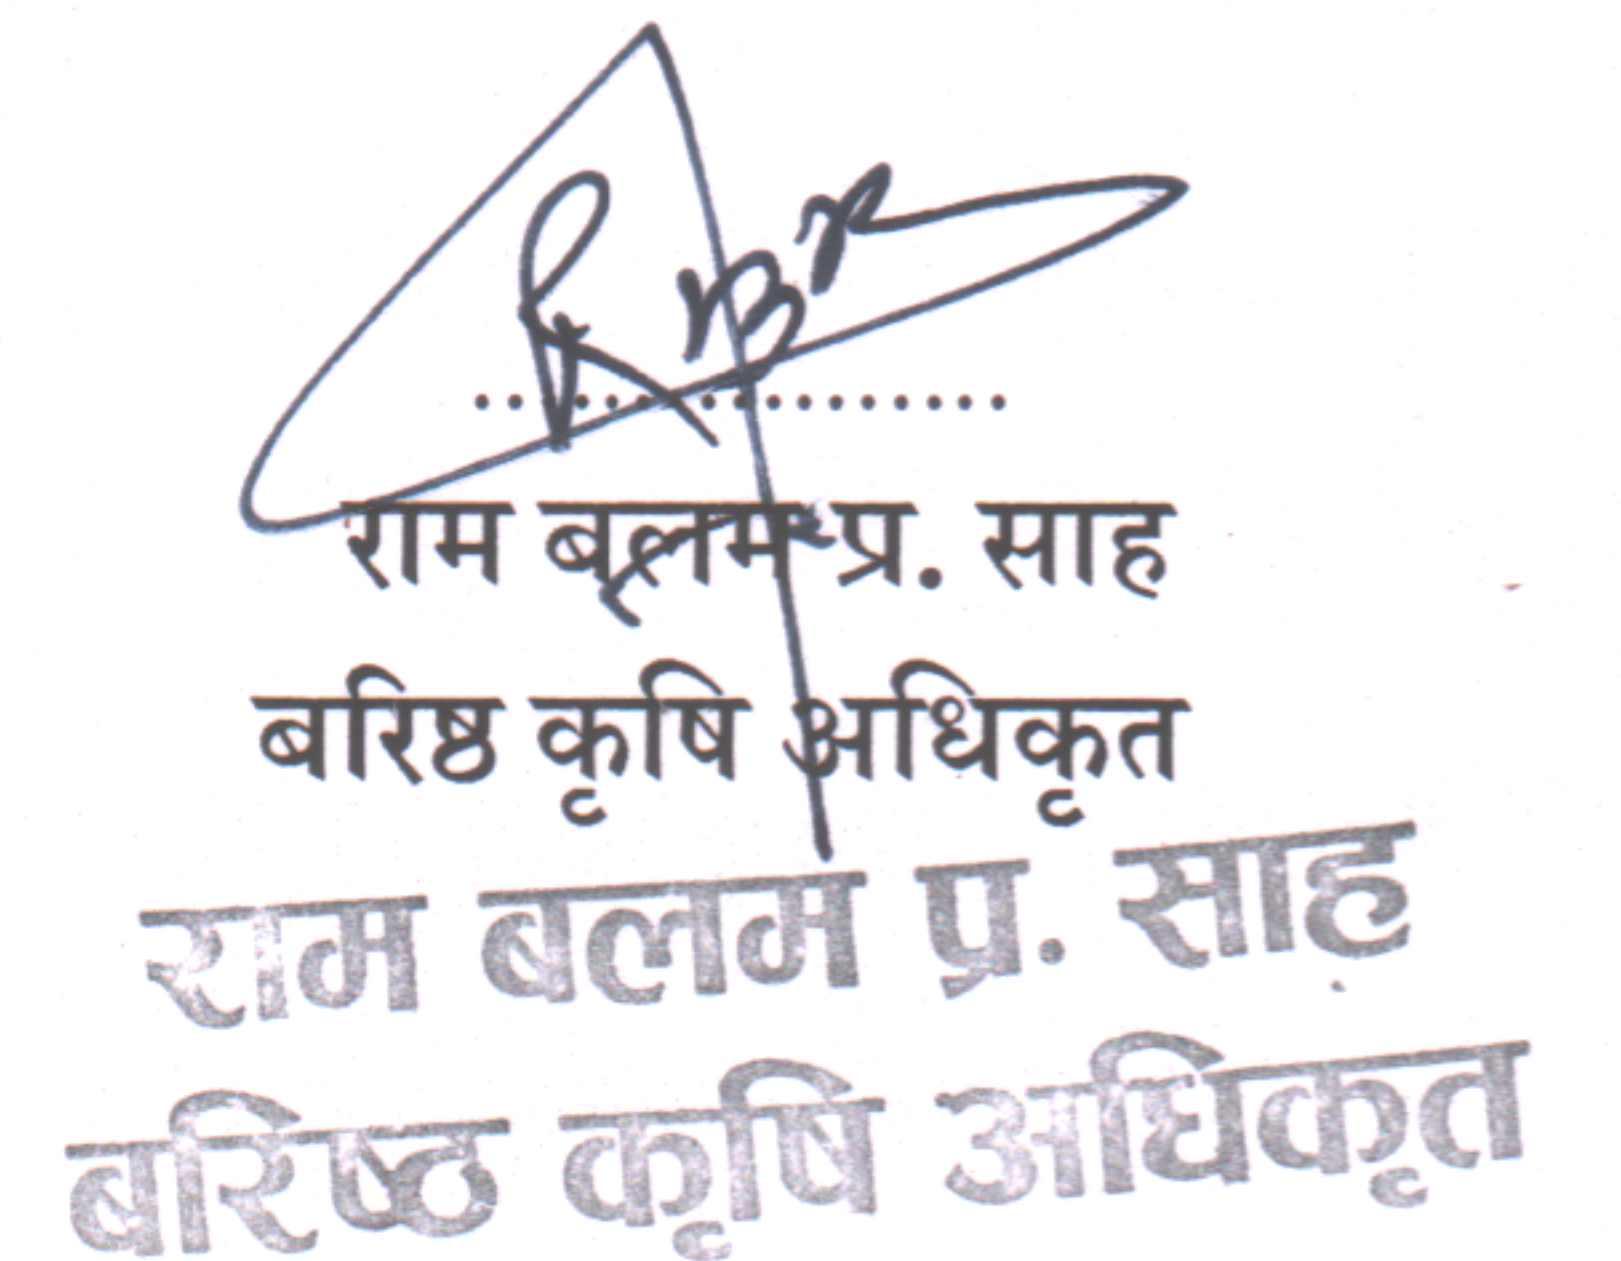 ....................
राम बलम प्र. साह
बरिष्ठ कृषि अधिकृत
राम बलम प्र. साह
बरिष्ठ कृषि अधिकृत